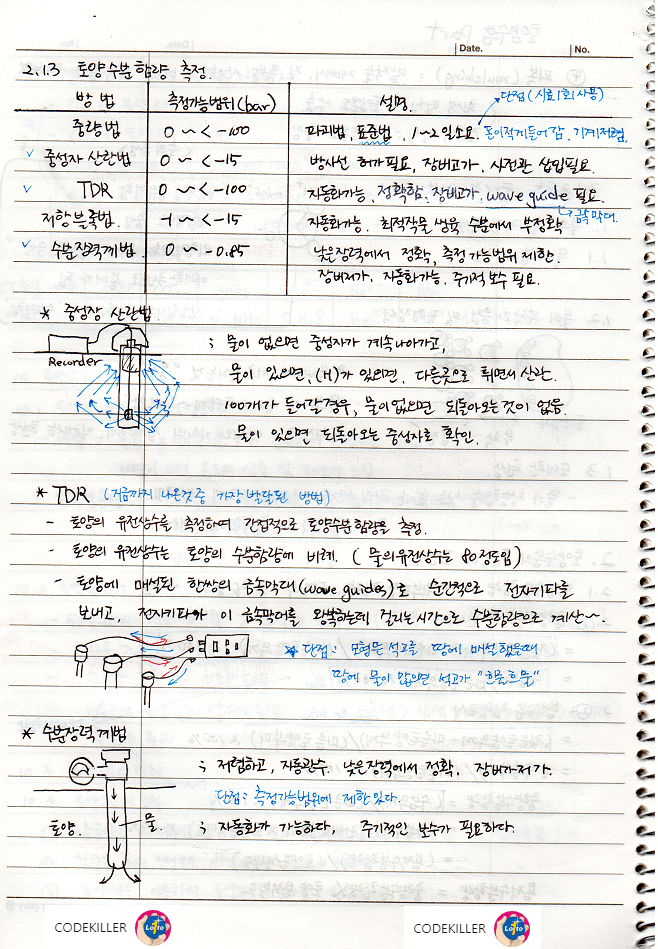 Date.
No.
2.1.3 토양수분함량 측정.
방법 측정가능범위(bar) 설명.
단점(시료1회사용)
중량법 0 ~ < -100 파괴법, 표준법, 1~2일소요. 돈이적게들어감. 기계저렴.
✓ 중성자 산란법 0 ~ < -15 방사선 허가필요, 장비고가, 사전관 삽입필요.
✓ TDR 0 ~ < -100 자동화가능, 정확함, 장비고가, wave guide 필요.
금속막대.
저항블록법. -1 ~ < -15 자동화가능. 최적작물 생육 수분에서 부정확.
✓ 수분장력계법 0 ~ -0.85 낮은장력에서 정확, 측정가능범위 제한.
장비저가, 자동화가능. 주기적 보수 필요.
* 중성장 산란법
Recorder
; 물이 없으면 중성자가 계속나아가고,
물이 있으면, (H)가 있으면, 다른곳으로 튀면서 산란.
100개가 들어갈경우, 물이없으면 되돌아오는것이 없음.
물이 있으면 되돌아오는 중성자로 확인.
* TDR (지금까지 나온것중 가장 발달된 방법)
- 토양의 유전상수를 측정하여 간접적으로 토양수분함량을 측정.
- 토양의 유전상수는 토양의 수분함량에 비례. ( 물의유전상수는 80정도임)
- 토양에 매설된 한쌍의 금속막대(wave guides)로 순간적으로 전자기파를
보내고, 전자기파가 이 금속막대를 왕복하는데 걸리는시간으로 수분함량으로 계산~.
* 단점: 모형뜬 석고를 땅에 매설했을때
땅에 물이 많으면 석고가 "흐물흐물"
* 수분장력계법
; 저렴하고, 자동관수. 낮은장력에서 정확, 장비가저가.
단점: 측정가능범위에 제한있다.
토양. 물. ; 자동화가 가능하다, 주기적인 보수가 필요하다.
CODEKILLER Lotto CODEKILLER Lotto